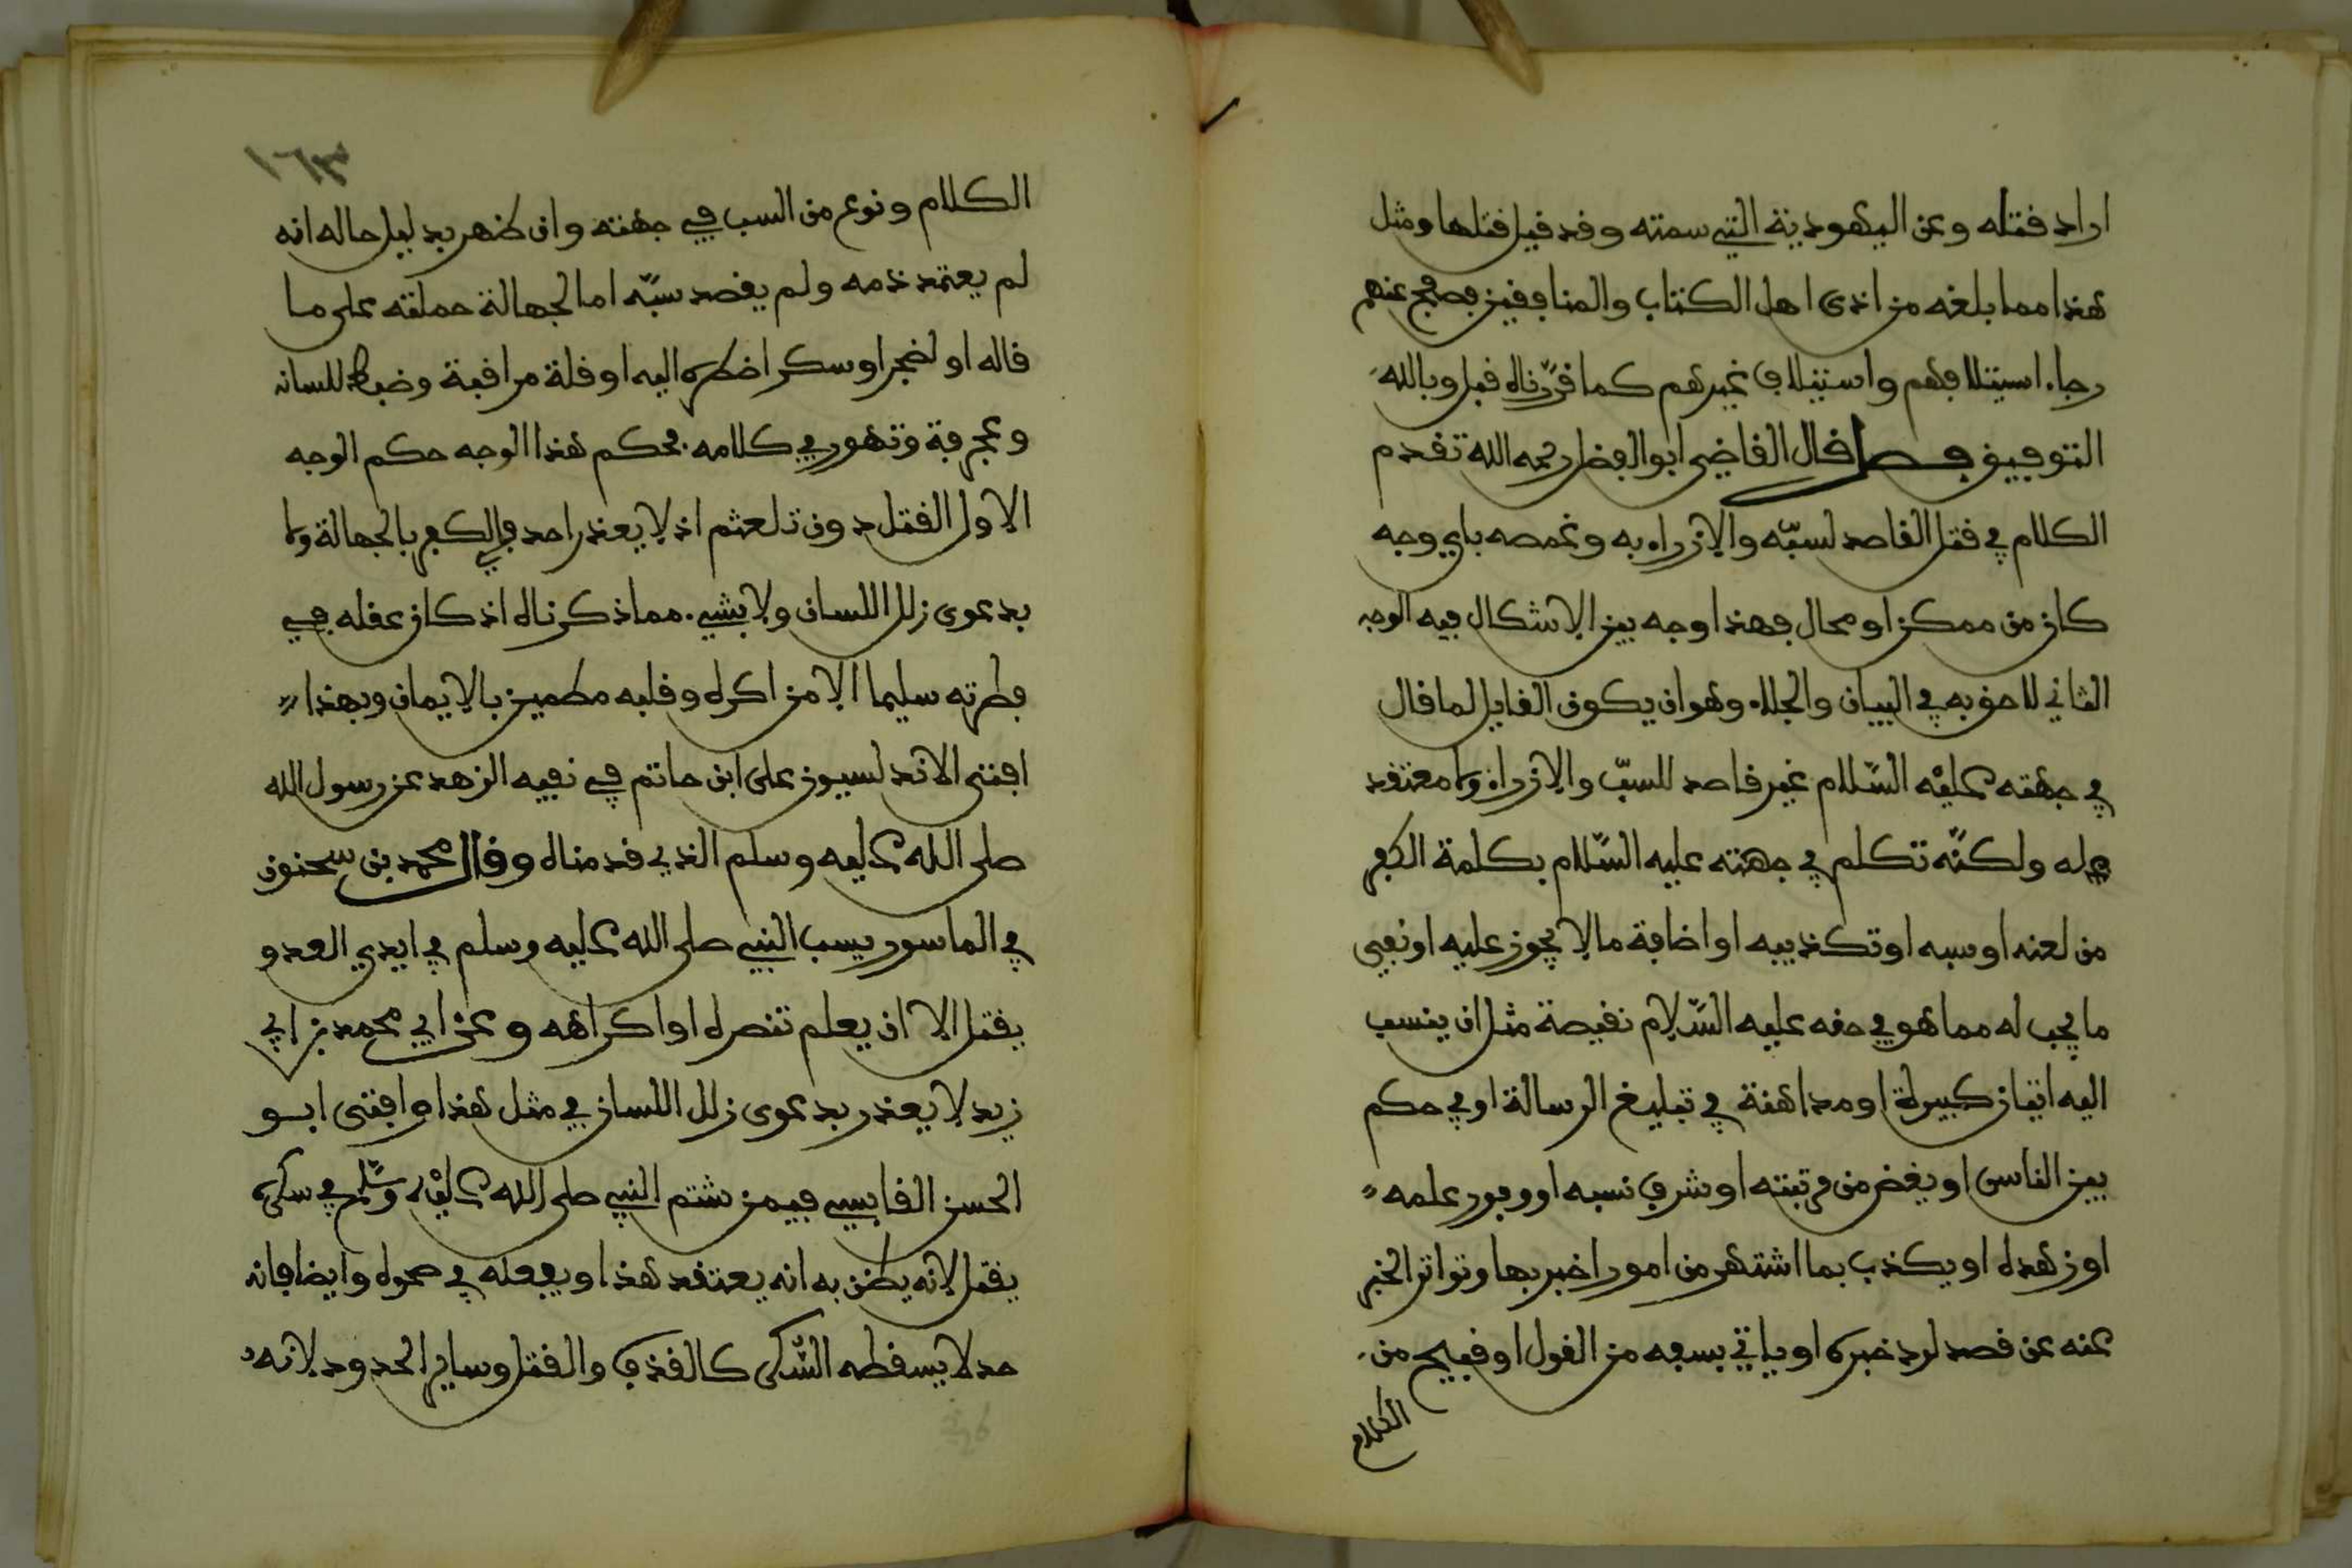 اراد قتله وعن اليهودية التي سمته وقد قيل قتلها ومثل
هذا مما بلغه من اذى اهل الكتاب والمنافقين فصفح عنهم
رجاء استيلافهم واستيلاف غيرهم كما قررناه قبل وبالله
التوفيق فصل قال القاضي ابو الفضل رحمه الله تقدم
الكلام في قتل القاصد لسبّه والازراء به وغمصه باي وجه
كان من ممكن او محال فهذا وجه بين لا شكال فيه الوجه
الثاني للاحق به في البيان والجلاء وهو ان يكون القايل لما قال
في جهته عليْه السّلام غير قاصد للسبّ والازراء ولا معتقد
له ولكنّه تكلم في جهته عليه السّلام بكلمة الكفر
من لعنه او سبه او تكذيبه او اضافة ما لا يجوز عليه او نفيي
ما يجب له مما هو في حقه عليه السّلام نقيصة مثل ان ينسب
اليه اتيان كبيرة او مداهنة في تبليغ الرسالة او في حكم
بين الناس او يغض من مرتبته او شرف نسبه او وفور علمه
او زهده او يكذب بما اشتهر من امور اخبر بها وتواتر الخبر
عنه عن قصد لرد خبره او ياتي بسفه من القول او قبيح من
الكلام
١٦٣
الكلام ونوع من السب في جهته وان ظهر بدليل حاله انه
لم يعتمد ذمه ولم يقصد سبّه اما لجهالة حملته على ما
قاله او لضجر او سكر اضطره اليه او قلة مراقبة وضبط للسانه
وعجرفة وتهور في كلامه فحكم هذا الوجه حكم الوجه
الاول القتل دون تلعثم اذ لا يعذر احد في الكفر بالجهالة ولا
بدعوى زلل اللسان ولا بشيء مما ذكرناه اذ كان عقله في
فطرته سليما الا من اكره وقلبه مطمين بالايمان وبهذا
افتى الاندلسيون على ابن حاتم في نفيه الزهد عن رسول الله
صلى الله عليه وسلم الذي قدمناه وقال محمد بن سحنون
في الماسور يسب النبي صلى الله عليه وسلم في ايدي العدو
يقتل الا ان يعلم تنصره او اكراهه وعن ابي محمد بن ابي
زيد لا يعذر بدعوى زلل اللسان في مثل هذا وافتى ابو
الحسن القابسي فيمن شتم النبي صلى الله عليْه وسلّم في سكره
يقتل لانه يظن به انه يعتقد هذا ويفعله في صحوه وايضا فانه
حد لا يسقطه السّكر كالقذف والقتل وساير الحدود لانه